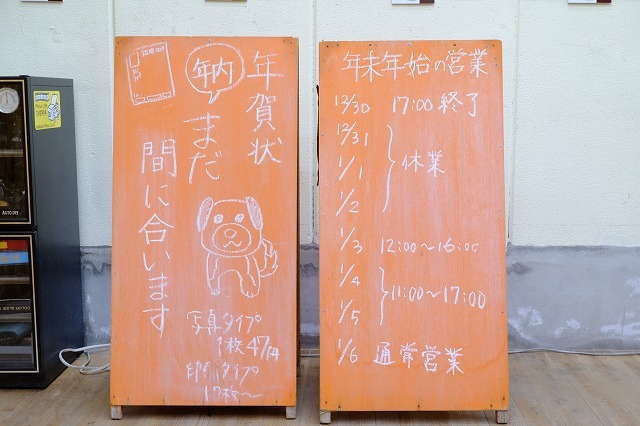 年賀状
年内
まだ
間に合います
写真タイプ
1枚47円
印刷タイプ
年末年始の営業
12/30 17:00 終了
12/31
1/1 休業
1/2
1/3 12:00〜16:00
1/4
11:00〜17:00
1/5
1/6 通常営業
AUTO DRY